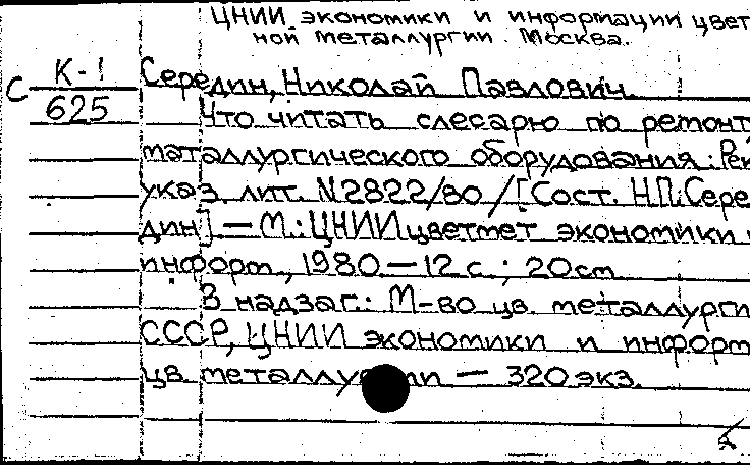 ЦНИИ экономики и информации цвет
ной металлургии. Москва.
С К-1
625
Середин, Николай Павлович.
Что читать слесарю по ремонт
маталлургического оборудования: Рек
указ. лит. N2822/80 / [Сост. Н.П. Сере
дин] — М.: ЦНИИцветмет экономики и
информ., 1980. — 12 с.; 20 см
В надзаг.: М-во цв. металлурги
СССР, ЦНИИ экономики и информ
цв. металлургии — 320 экз.